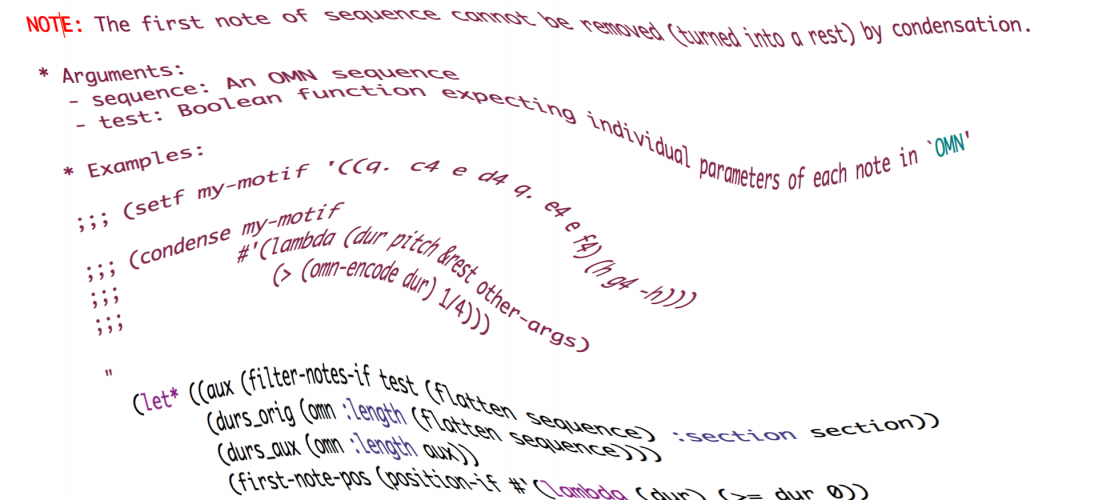 NOTE: The first note of sequence cannot be removed (turned into a rest) by condensation.
* Arguments:
- sequence: An OMN sequence
- test: Boolean function expecting individual parameters of each note in `OMN'
* Examples:
;;; (setf my-motif '((q. c4 e d4 q. e4 e f4) (h g4 -h)))
;;; (condense my-motif
;;; #'(lambda (dur pitch &rest other-args)
;;; (> (omn-encode dur) 1/4)))
"
(let* ((aux (filter-notes-if test (flatten sequence) :section section))
(durs_orig (omn :length (flatten sequence)))
(durs_aux (omn :length aux))
(first-note-pos (position-if #'(lambda (dur) (>= dur 0))